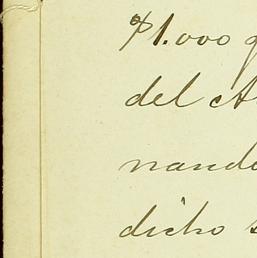 $1.000 q
del A
nand
dicho